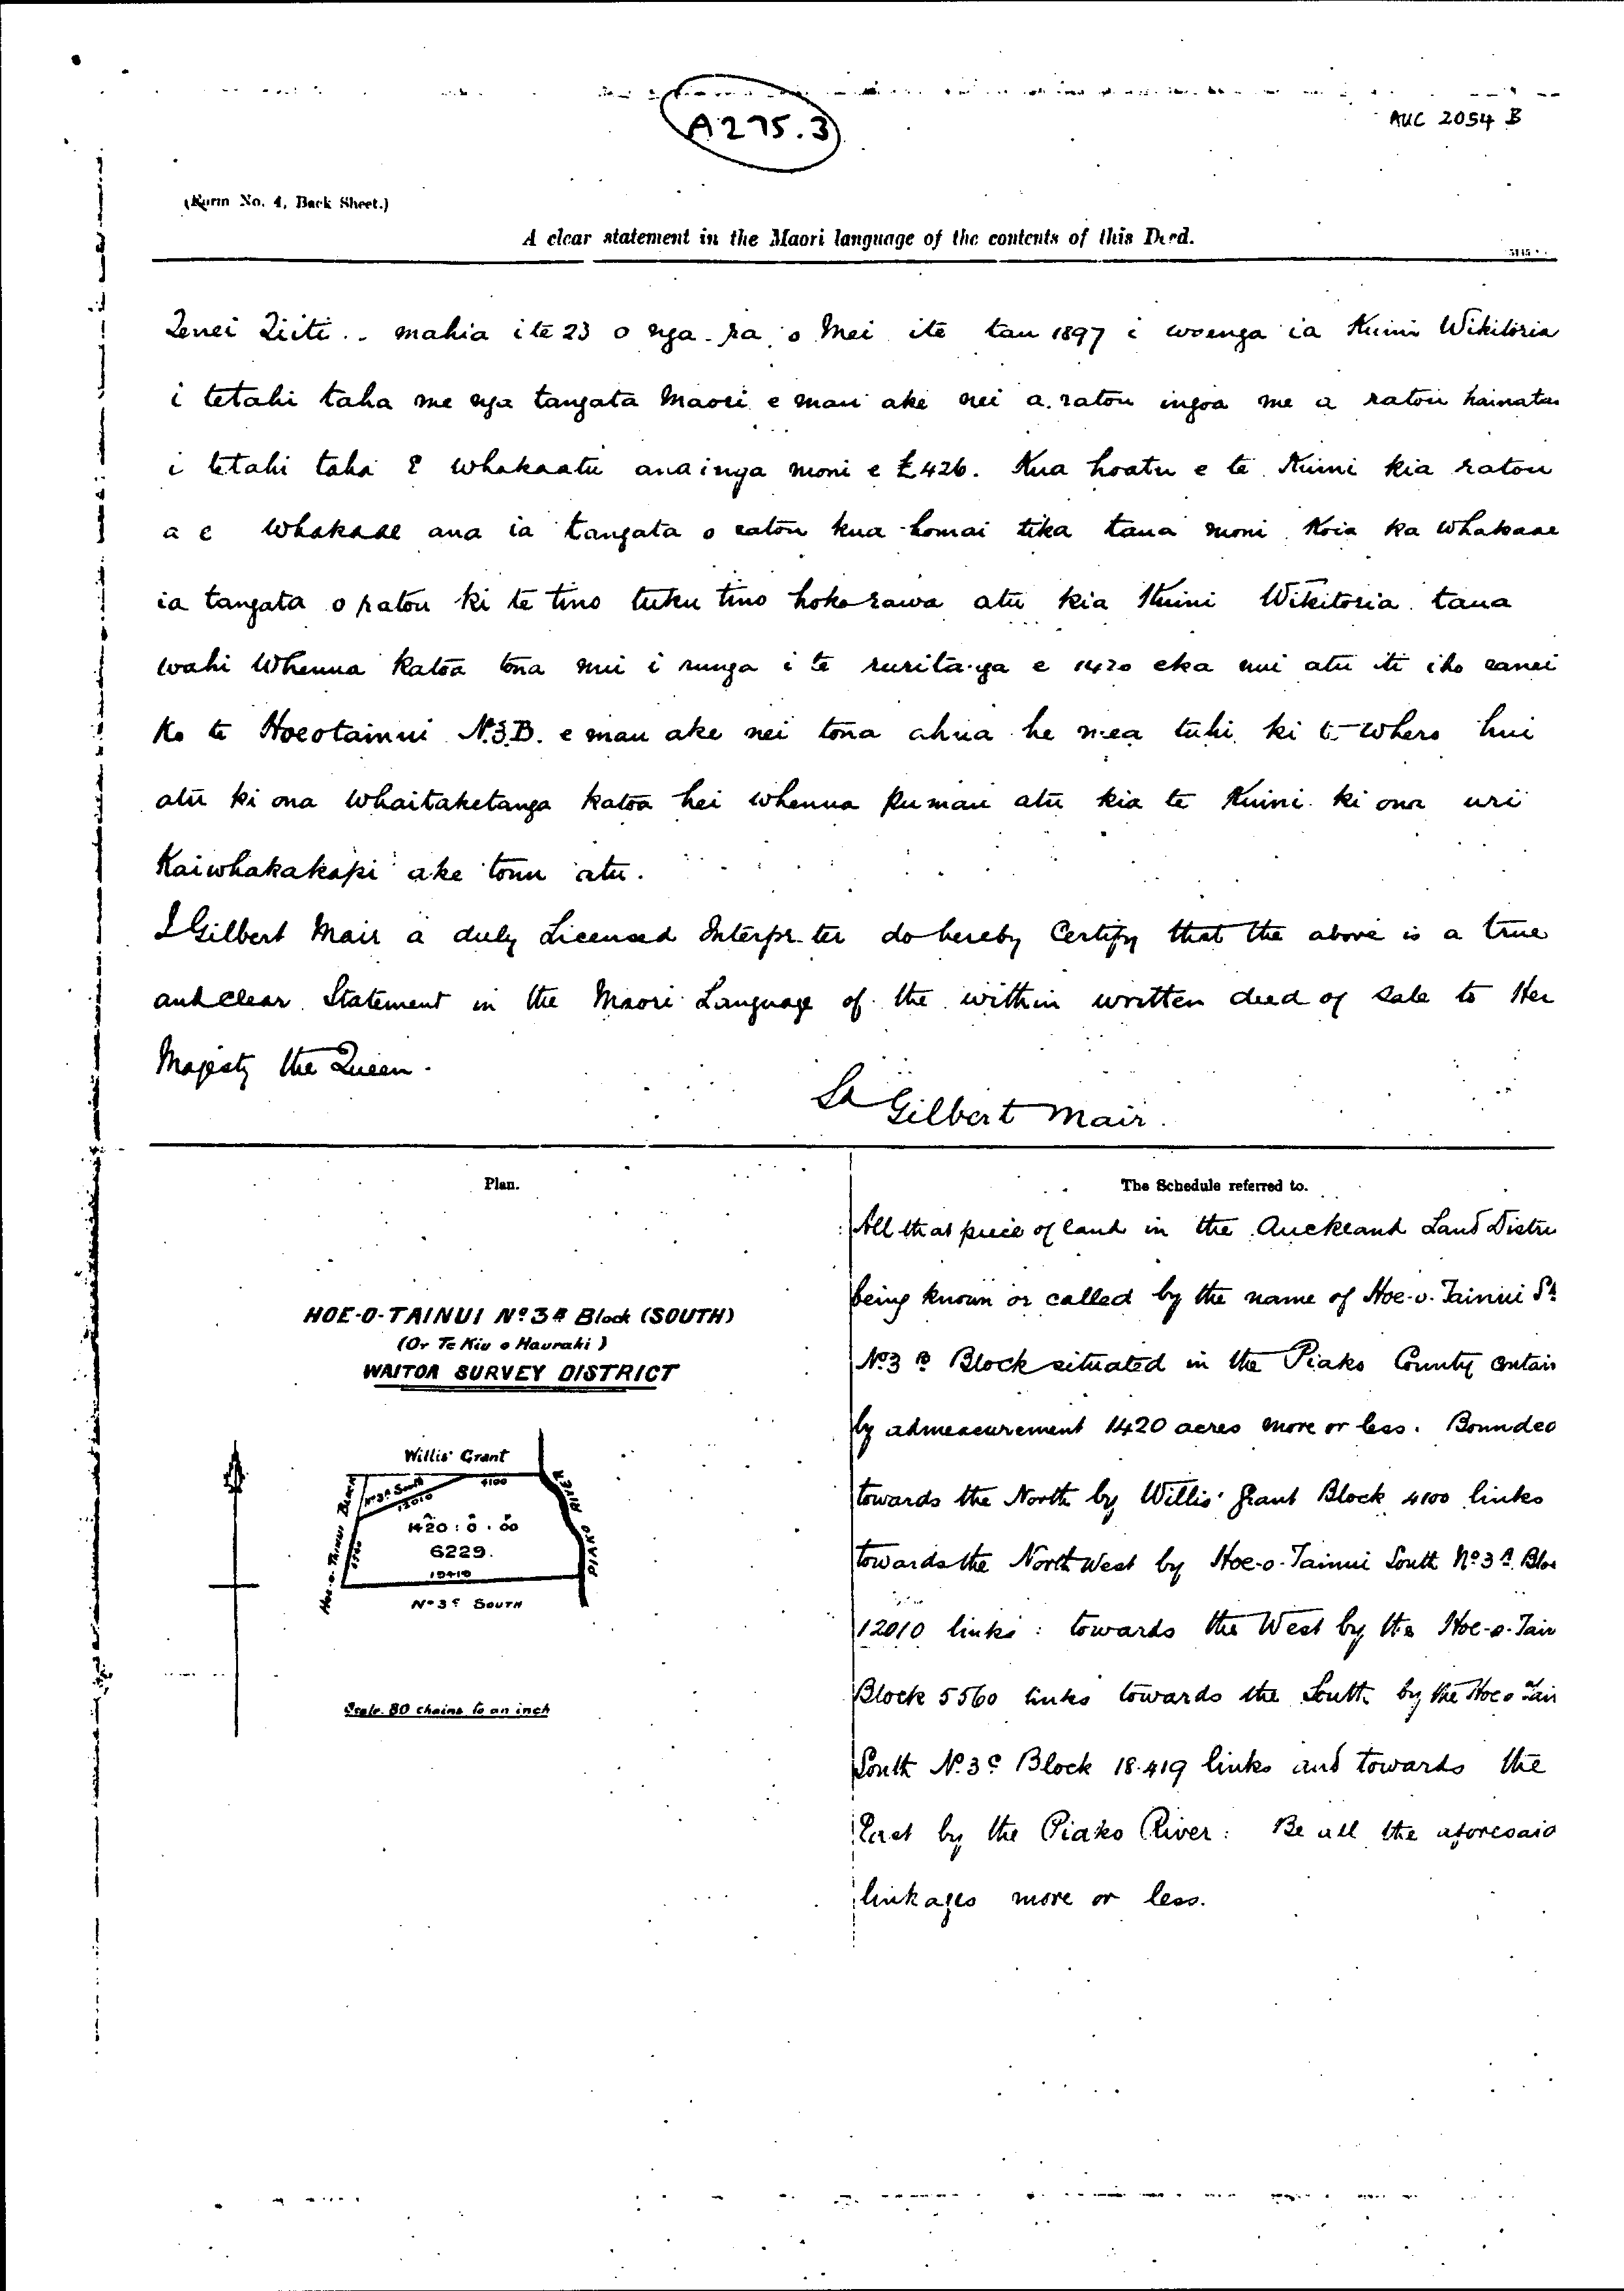 A275.3
AUC 2054 B
(Form No. 4, Back Sheet.)
A clear statement in the Maori language of the contents of this Deed.
Tenei Tiiti .. mahia i te 23 o nga ra o Mei ite tau 1897 i woenga ia Kuini Wikitoria
i tetahi taha me nga tangata Maori e mau ake nei a ratou ingoa me a ratou hainatau
i tetahi taha E whakaatu ana inga moni e £426. Kua hoatu e te Kuini kia ratou
a e whakaae ana ia tangata o ratou kua homai tika taua moni Koia ka whakaae
ia tangata o ratou ki te tino tuku tino hoko rawa atu kia Kuini Wikitoria taua
wahi Whenua katoa tona nui i runga i te ruritanga e 1420 eka nui atu iti iho ranei
Ko te Hoeotainui No.3.B. e mau ake nei tona ahua he mea tuhi ki te whero hui
atu ki ona whaitaketanga katoa hei whenua pumau atu kia te Kuini ki ona uri
Kaiwhakakapi ake tonu atu.
I Gilbert Mair a duly Licensed Interpr ter do hereby Certify that the above is a true
and clear Statement in the Maori Language of the within written deed of sale to Her
Majesty the Queen.
Gilbert Mair.
Plan.
HOE-O-TAINUI No 3B Block (SOUTH)
(Or Te Kiu o Hauraki)
WAITOA SURVEY DISTRICT
Willis' Grant
4100
No 3A South
12010
HOE-O-TAINUI BLOCK
5560
1420 : 0 : 00
6229.
18419
No 3C SOUTH
PIAKO RIVER
Scale 80 chains to an inch
The Schedule referred to.
All that piece of land in the Auckland Land Distri
being known or called by the name of Hoe-o-Tainui Sth
No 3B Block situated in the Piako County contain
by admeasurement 1420 acres more or less. Bounded
towards the North by Willis' Grant Block 4100 links
towards the North West by Hoe-o-Tainui South No 3A Bloc
12010 links : towards the West by the Hoe-o-Tain
Block 5560 links towards the South by the Hoe o Tain
South No. 3C Block 18.419 links and towards the
East by the Piako River : Be all the aforesaid
linkages more or less.